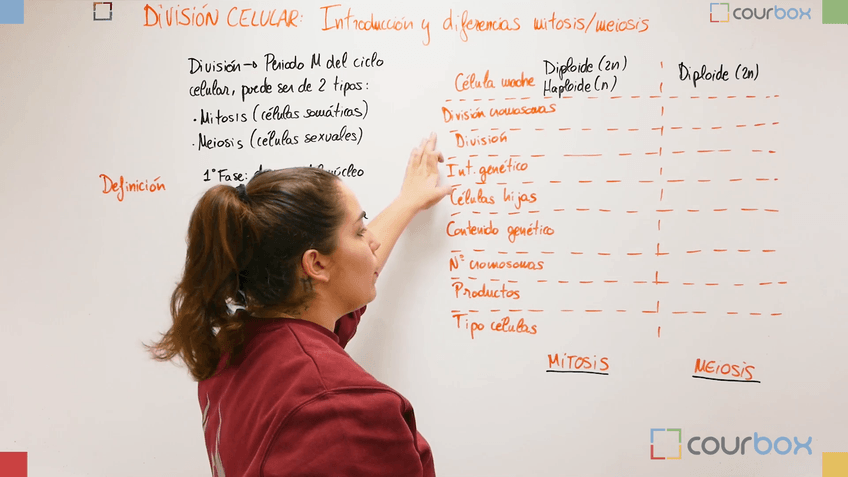 DIVISIÓN CELULAR: Introducción y diferencias mitosis/meiosis
courbox
División → Periodo M del ciclo
celular, puede ser de 2 tipos:
· Mitosis (células somáticas)
· Meiosis (células sexuales)
1ª Fase:
Definición
Célula madre Diploide (2n) Diploide (2n)
Haploide (n)
División cromosomas
División
Int. genético
Células hijas
Contenido genético
Nº cromosomas
Productos
Tipo células
MITOSIS MEIOSIS
courbox